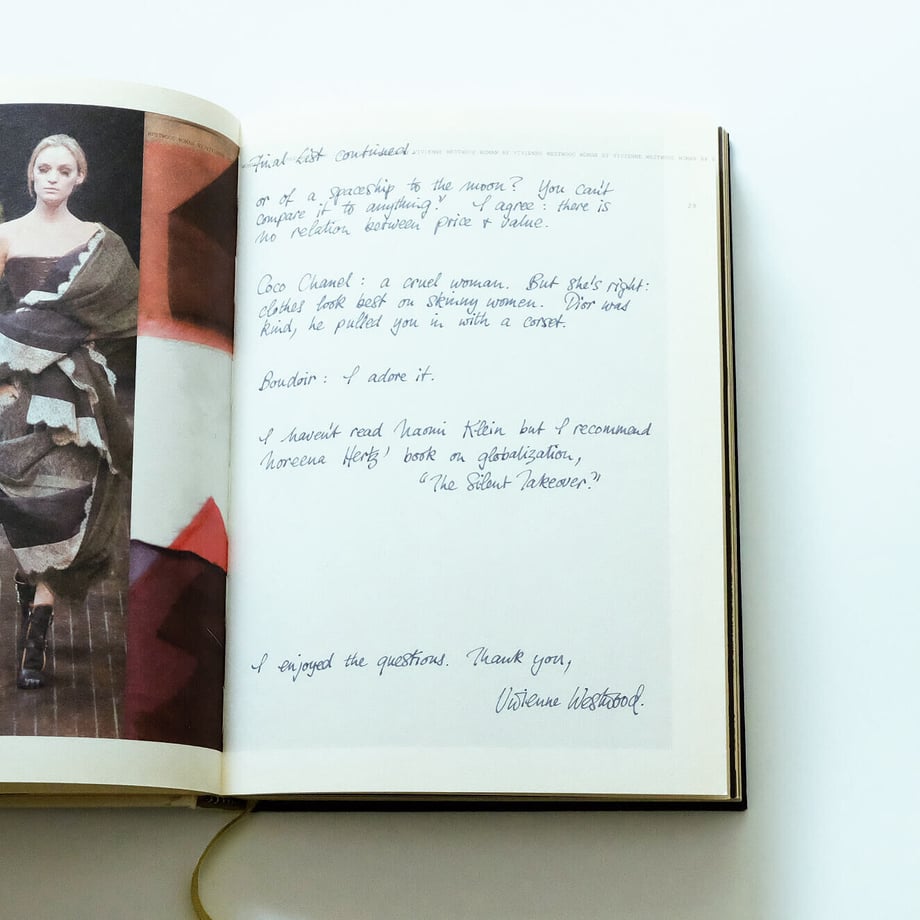 WESTWOOD WOMAN BY VIVIENNE WESTWOOD
Final List continued
VIVIENNE WESTWOOD WOMAN BY VIVIENNE WESTWOOD WOMAN BY VIVIENNE WESTWOOD WOMAN BY V
or of a spaceship to the moon? You can't
compare it to anything." I agree : there is
no relation between price + value.
Coco Chanel : a cruel woman. But she's right:
clothes look best on skinny women. Dior was
kind, he pulled you in with a corset.
Boudoir : I adore it.
I haven't read Naomi Klein but I recommend
Noreena Hertz' book on globalization,
"The Silent Takeover."
I enjoyed the questions. Thank you,
Vivienne Westwood.